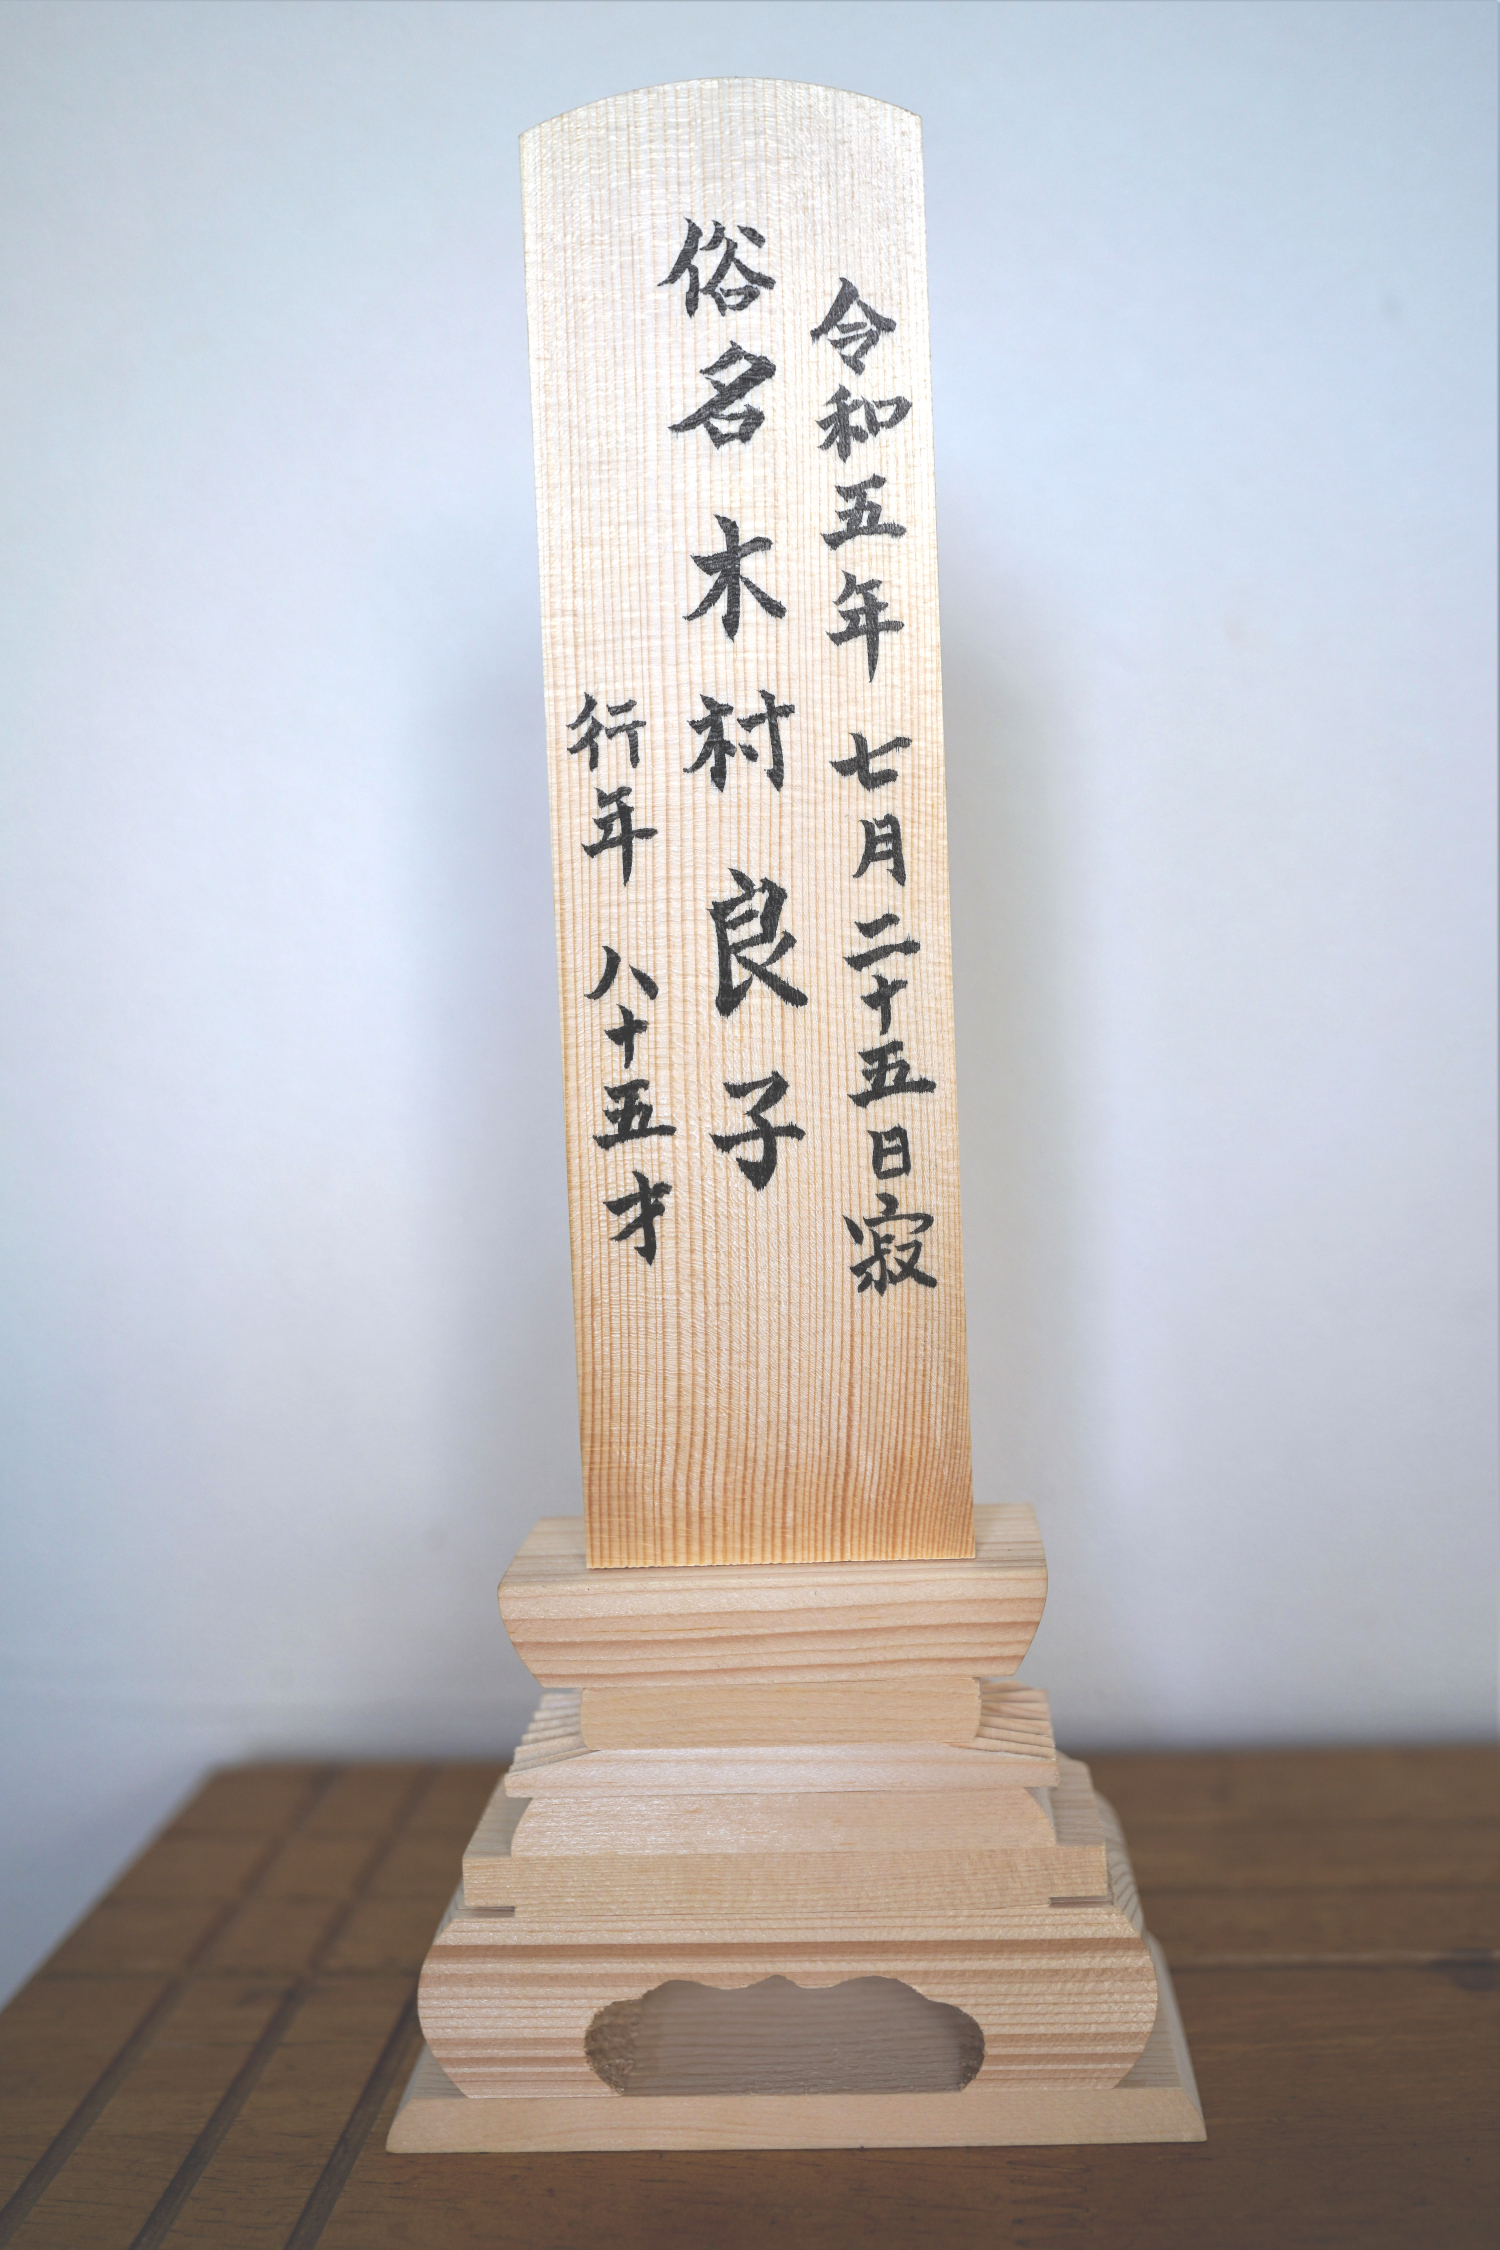 令和五年 七月二十五日寂
俗名 木村 良子
行年 八十五才